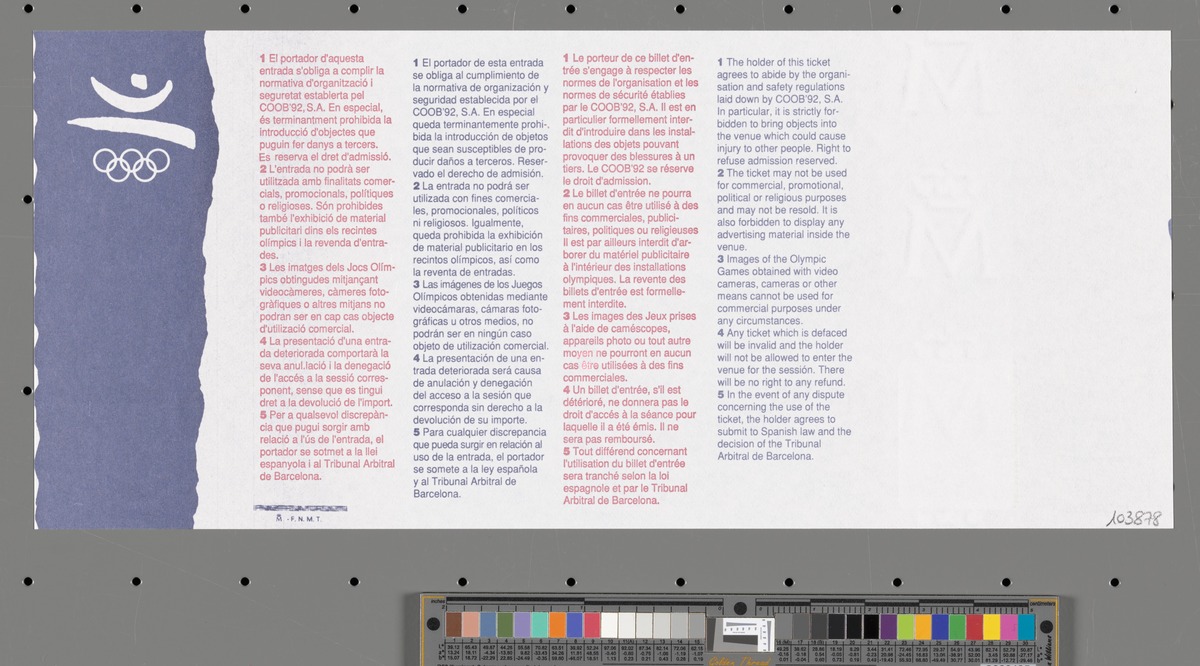 1 El portador d'aquesta
entrada s'obliga a complir la
normativa d'organització i
seguretat establerta pel
COOB'92, S.A. En especial,
és terminantment prohibida la
introducció d'objectes que
puguin fer danys a tercers.
Es reserva el dret d'admissió.
2 L'entrada no podrà ser
utilitzada amb finalitats comer-
cials, promocionals, polítiques
o religioses. Són prohibides
també l'exhibició de material
publicitari dins els recintes
olímpics i la revenda d'entra-
des.
3 Les imatges dels Jocs Olím-
pics obtingudes mitjançant
videocàmeres, càmeres foto-
gràfiques o altres mitjans no
podran ser en cap cas objecte
d'utilització comercial.
4 La presentació d'una entra-
da deteriorada comportarà la
seva anul.lació i la denegació
de l'accés a la sessió corres-
ponent, sense que es tingui
dret a la devolució de l'import.
5 Per a qualsevol discrepàn-
cia que pugui sorgir amb
relació a l'ús de l'entrada, el
portador se sotmet a la llei
espanyola i al Tribunal Arbitral
de Barcelona.
M. - F. N. M. T.
1 El portador de esta entrada
se obliga al cumplimiento de
la normativa de organización y
seguridad establecida por el
COOB'92, S.A. En especial
queda terminantemente prohi-
bida la introducción de objetos
que sean susceptibles de pro-
ducir daños a terceros. Reser-
vado el derecho de admisión.
2 La entrada no podrá ser
utilizada con fines comercia-
les, promocionales, políticos
ni religiosos. Igualmente,
queda prohibida la exhibición
de material publicitario en los
recintos olímpicos, así como
la reventa de entradas.
3 Las imágenes de los Juegos
Olímpicos obtenidas mediante
videocámaras, cámaras foto-
gráficas u otros medios, no
podrán ser en ningún caso
objeto de utilización comercial.
4 La presentación de una en-
trada deteriorada será causa
de anulación y denegación
del acceso a la sesión que
corresponda sin derecho a la
devolución de su importe.
5 Para cualquier discrepancia
que pueda surgir en relación al
uso de la entrada, el portador
se somete a la ley española
y al Tribunal Arbitral de
Barcelona.
1 Le porteur de ce billet d'en-
trée s'engage à respecter les
normes de l'organisation et les
normes de sécurité établies
par le COOB'92, S.A. Il est en
particulier formellement inter-
dit d'introduire dans les instal-
lations des objets pouvant
provoquer des blessures à un
tiers. Le COOB'92 se réserve
le droit d'admission.
2 Le billet d'entrée ne pourra
en aucun cas être utilisé à des
fins commerciales, publici-
taires, politiques ou religieuses
Il est par ailleurs interdit d'ar-
borer du matériel publicitaire
à l'intérieur des installations
olympiques. La revente des
billets d'entrée est formelle-
ment interdite.
3 Les images des Jeux prises
à l'aide de caméscopes,
appareils photo ou tout autre
moyen ne pourront en aucun
cas être utilisées à des fins
commerciales.
4 Un billet d'entrée, s'il est
détérioré, ne donnera pas le
droit d'accés à la séance pour
laquelle il a été émis. Il ne
sera pas remboursé.
5 Tout différend concernant
l'utilisation du billet d'entrée
sera tranché selon la loi
espagnole et par le Tribunal
Arbitral de Barcelona.
1 The holder of this ticket
agrees to abide by the organi-
sation and safety regulations
laid down by COOB'92, S.A.
In particular, it is strictly for-
bidden to bring objects into
the venue which could cause
injury to other people. Right to
refuse admission reserved.
2 The ticket may not be used
for commercial, promotional,
political or religious purposes
and may not be resold. It is
also forbidden to display any
advertising material inside the
venue.
3 Images of the Olympic
Games obtained with video
cameras, cameras or other
means cannot be used for
commercial purposes under
any circumstances.
4 Any ticket which is defaced
will be invalid and the holder
will not be allowed to enter the
venue for the sessión. There
will be no right to any refund.
5 In the event of any dispute
concerning the use of the
ticket, the holder agrees to
submit to Spanish law and the
decision of the Tribunal
Arbitral de Barcelona.
103878